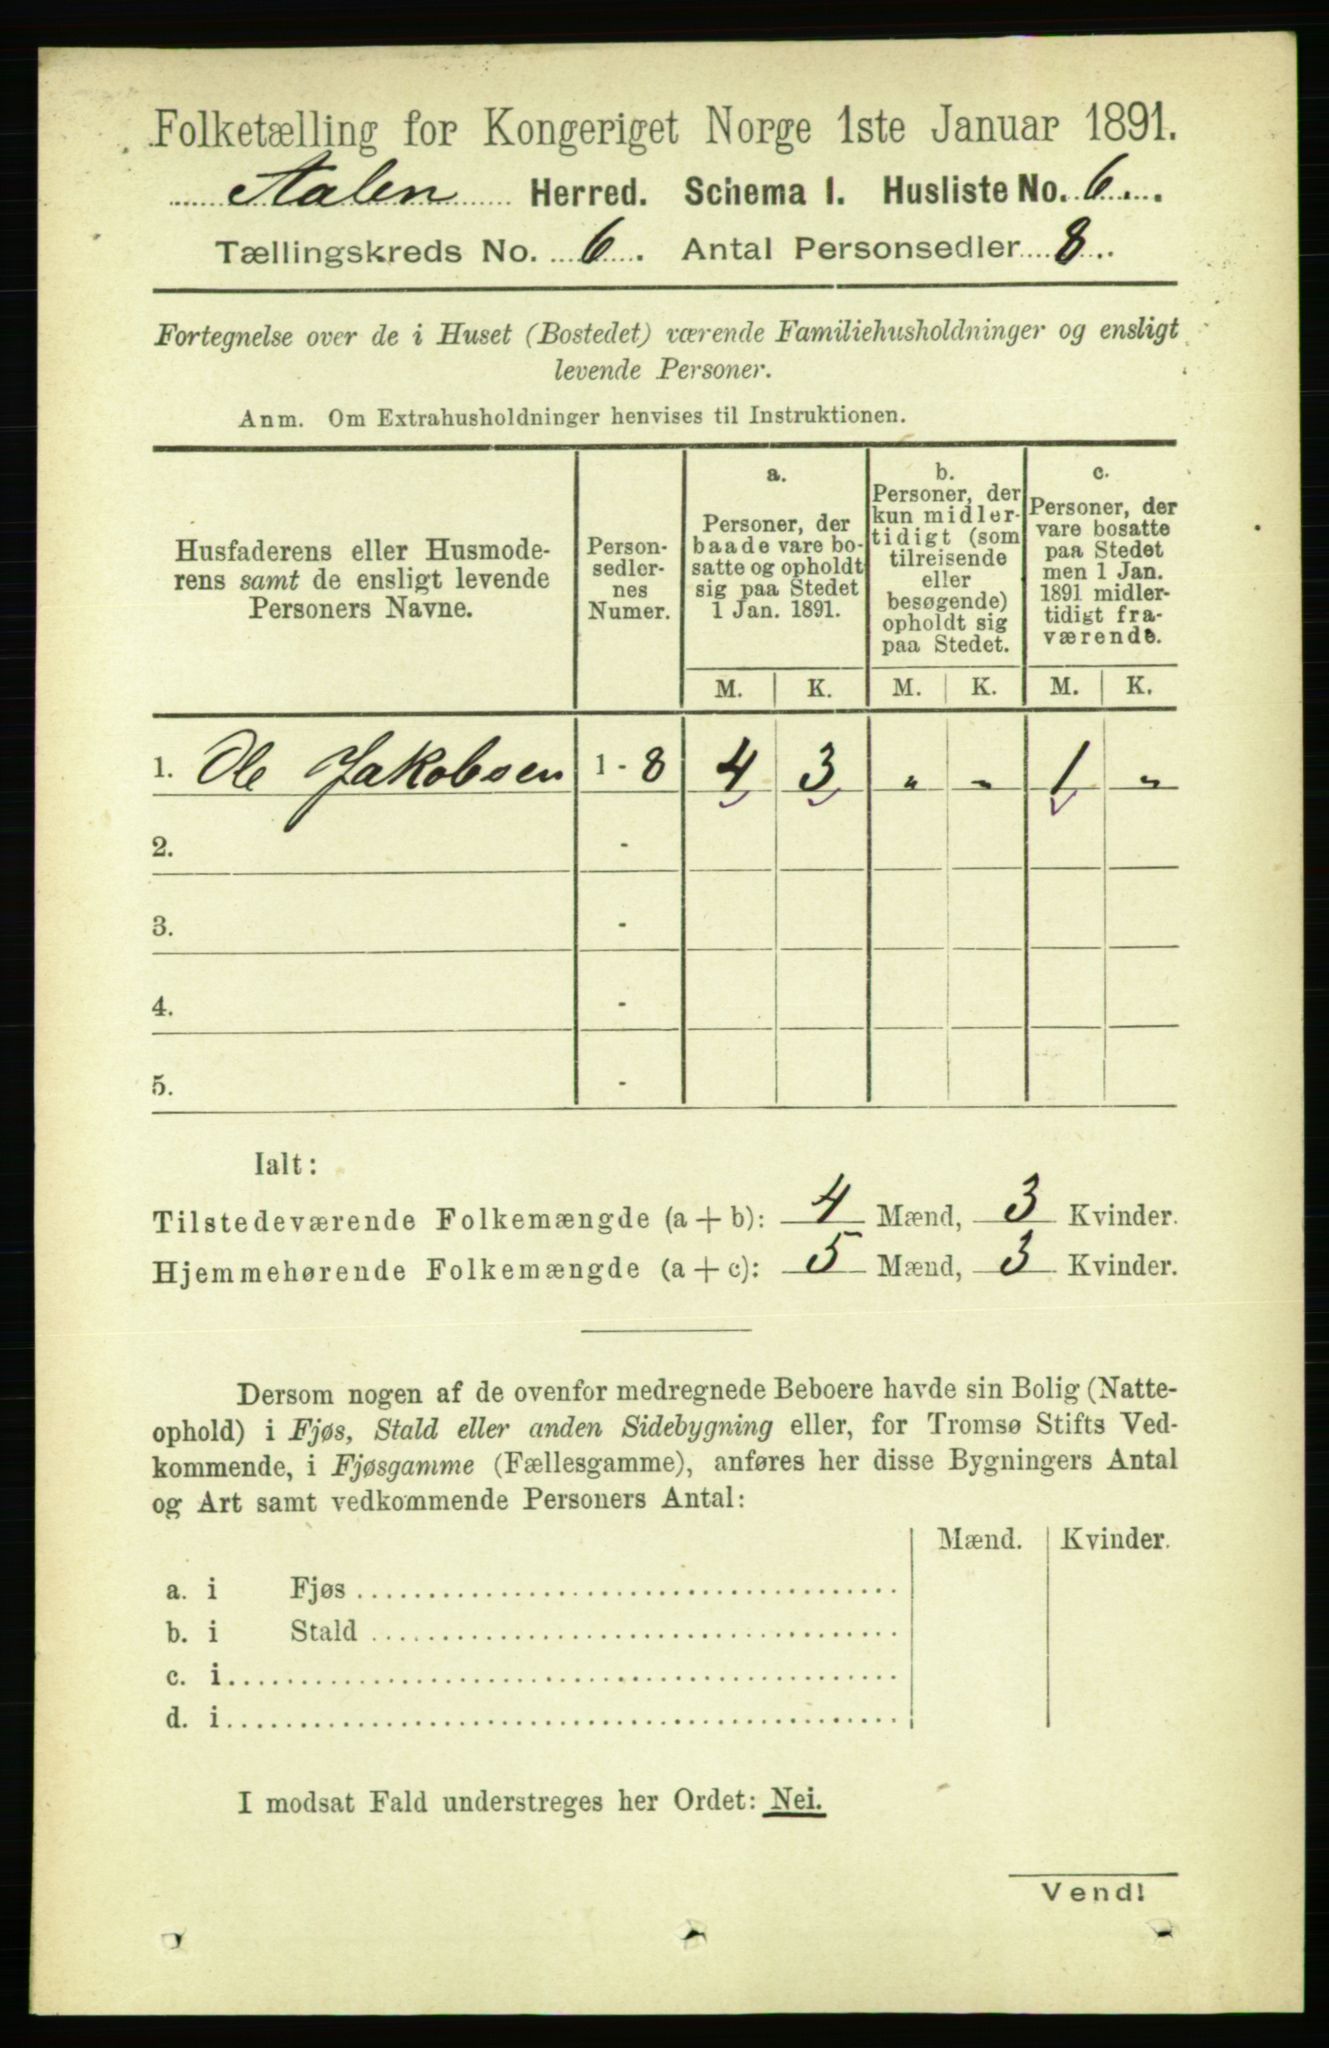 Folketælling for Kongeriget Norge 1ste Januar 1891.
Aalen Herred. Schema 1. Husliste No. 6
Tællingskreds No. 6. Antal Personsedler 8
Fortegnelse over de i Huset (Bostedet) værende Familiehusholdninger og ensligt
levende Personer.
Anm. Om Extrahusholdninger henvises til Instruktionen.
Husfaderens eller Husmode-
rens samt de ensligt levende
Personers Navne.
Person-
sedler-
nes
Numer.
a.
Personer, der
baade vare bo-
satte og opholdt
sig paa Stedet
1 Jan. 1891.
b.
Personer, der
kun midler-
tidigt (som
tilreisende
eller
besøgende)
opholdt sig
paa Stedet.
c.
Personer, der
vare bosatte
paa Stedet
men 1 Jan.
1891 midler-
tidigt fra-
værende.
M. K. M. K. M. K.
1. Ole Jakobsen 1 - 8 4 3 " " 1 "
2. -
3. -
4. -
5. -
Ialt:
Tilstedeværende Folkemængde (a + b): 4 Mænd, 3 Kvinder.
Hjemmehørende Folkemængde (a + c): 5 Mænd, 3 Kvinder.
Dersom nogen af de ovenfor medregnede Beboere havde sin Bolig (Natte-
ophold) i Fjøs, Stald eller anden Sidebygning eller, for Tromsø Stifts Ved-
kommende, i Fjøsgamme (Fællesgamme), anføres her disse Bygningers Antal
og Art samt vedkommende Personers Antal:
Mænd. Kvinder.
a. i Fjøs
b. i Stald
c. i
d. i
I modsat Fald understreges her Ordet: Nei.
Vend!